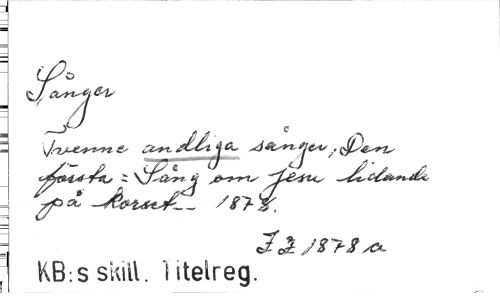 Sånger
Tvenne andliga sånger, Den
första = Sång om Jesu lidande
på korset_ _ 1878.
J Z 1878 a
KB:s skill. Titelreg.